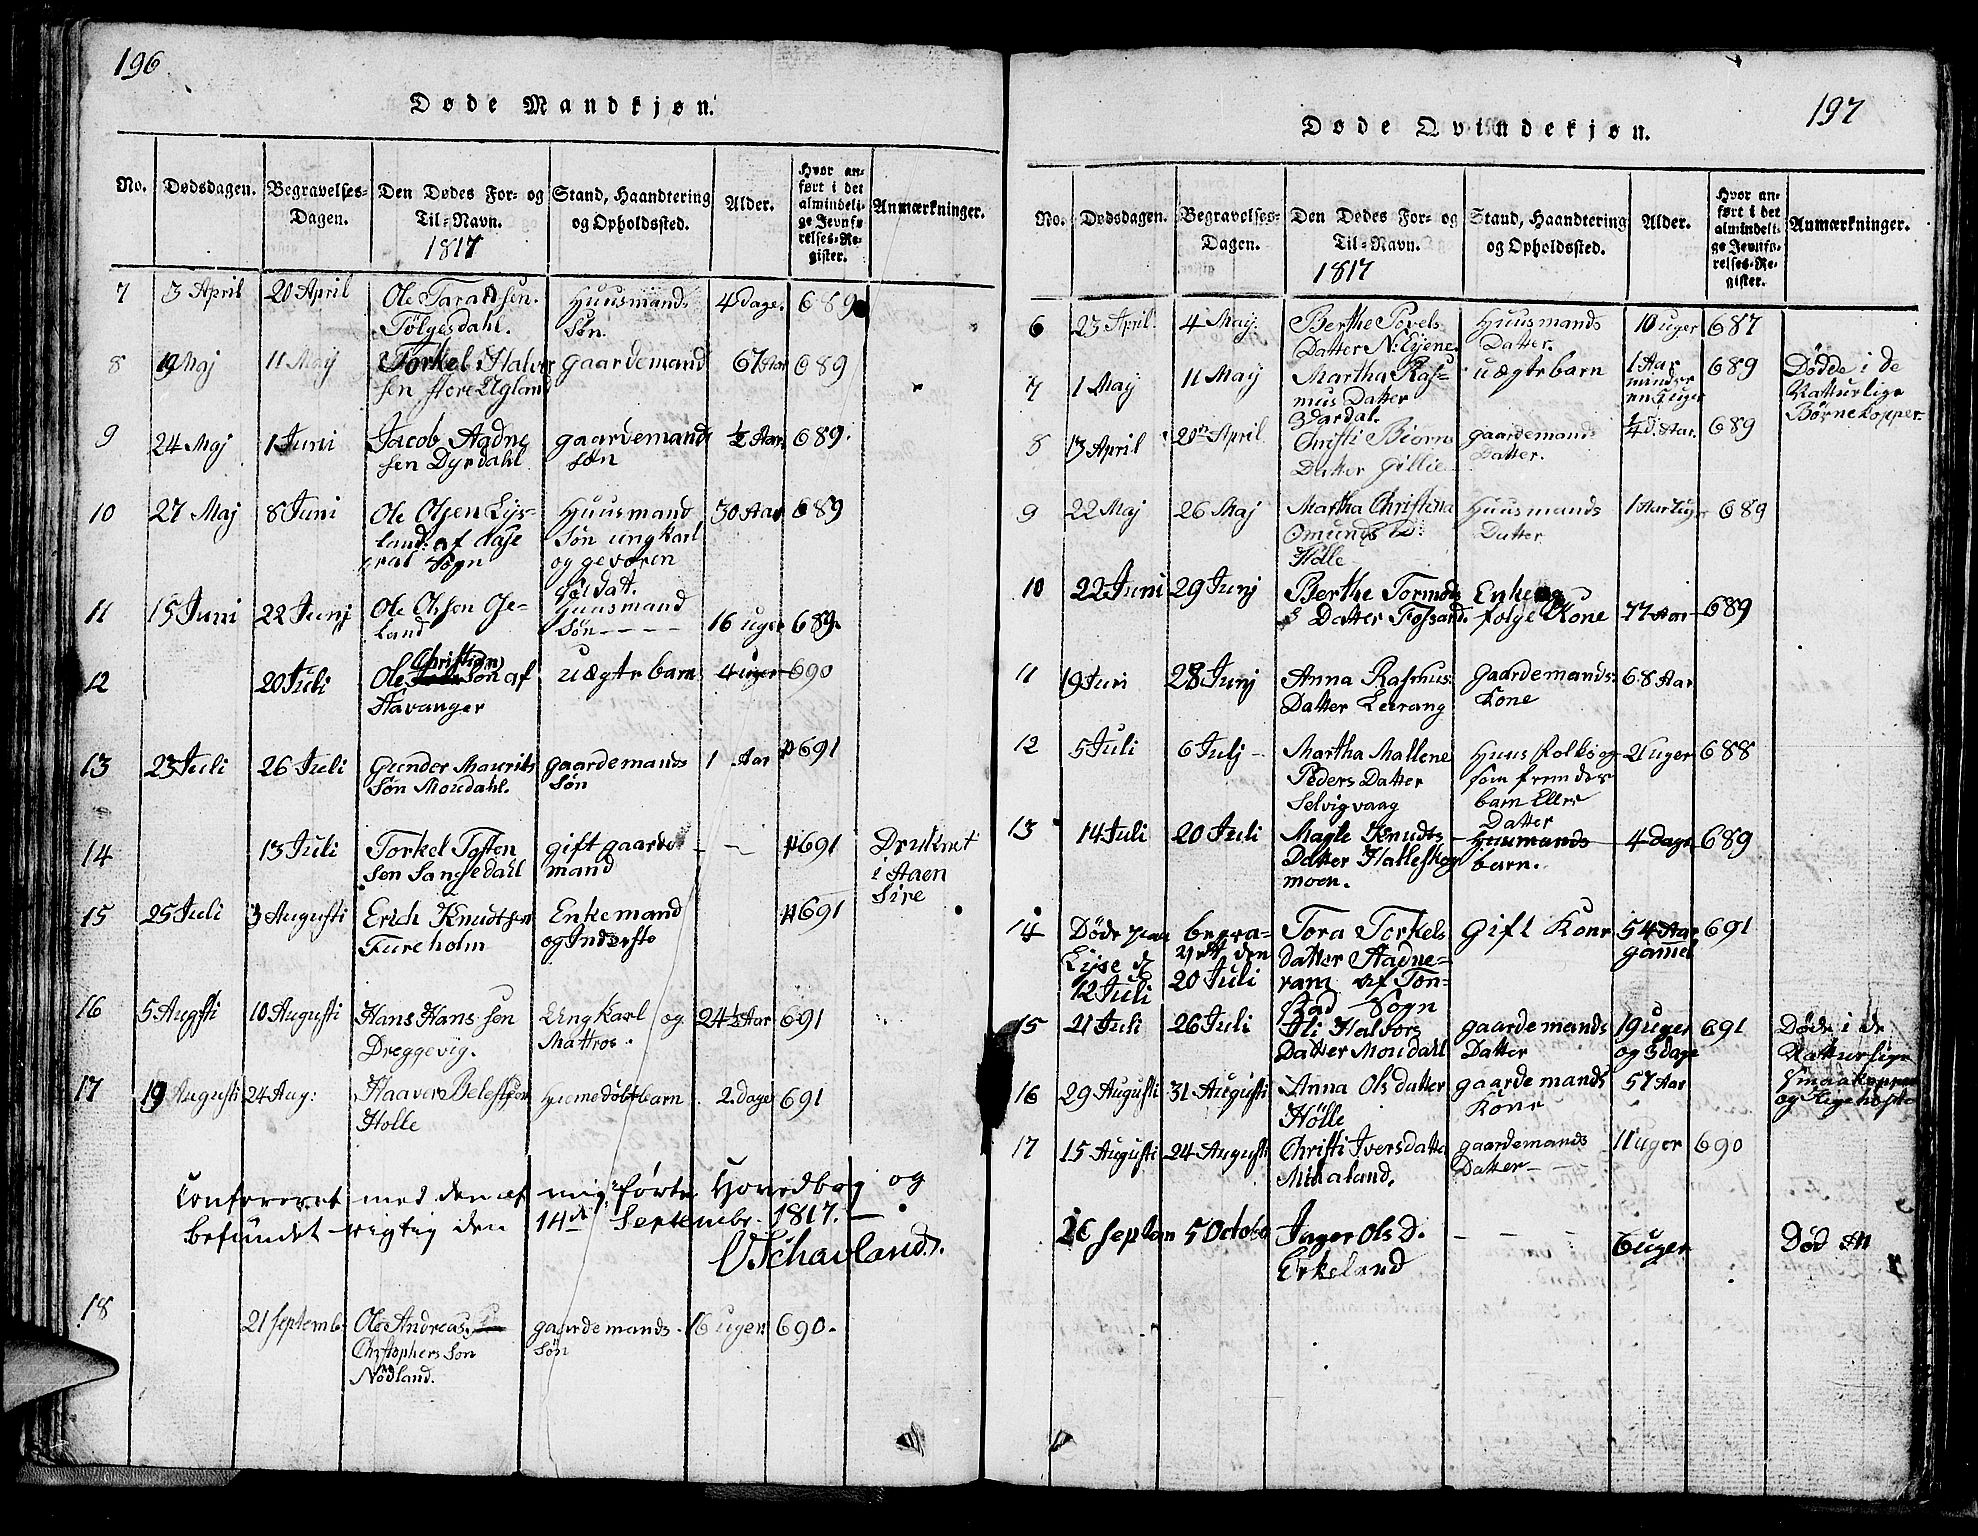 196
Døde Mandkjøn.
No. Dødsdagen. Begravelses-Dagen. Den Dødes For- og Til-Navn. Stand, Haandtering og Opholdssted. Alder. Hvor anført i det almindelige Jevnførelses-Register. Anmærkninger.
1817
7 3 April 20 April Ole Huusmands 4 dage. 689
Tölgesdahl. Søn.
8 Maj 11 Maij Torkel Halvor gaardemand 67 Aar 689
sen store Ugland
9 24 Maj 1 Juni Jacob Aadne gaardemands ½ Aar 689.
sen Dyrdahl søn
10 27 Maj 8 Juni Ole Olsen Lys= Huusmand 30 Aar 689
land: af Aase søn ungkarl
ral Sogn og gevoren
soldat.
11 15 Juni 22 Junj Ole Olsen Ose= Huusmand 16 uger 689.
land Søn
12 20 Juli Ole Christian søn af uægte barn 4 uger 690
Stavanger
13 23 Juli 26 Juli Gunder Maurits gaardemands 1 Aar 691
Søn Moudahl. Søn
14 13 Juli Torkel Tosten gift gaarde - - 691 Druknet
Søn Sangsedahl mand i Aaen
Sire
15 25 Juli 3 Augusti Erich Knudtsen Enkemand 691
Fureholm og Inderste
16 5 Augsti 10 Augusti Hans Hans sen Ungkarl og 24½ Aar 691
Dreggevig. Mattros.
17 19 Augusti 24 Aug: Haaver hiemedöbt barn 2 dage 691
Holle
Confereret med den af mig förte Hovedbog og
befundet rigtig den 14de Septembr. 1817.
O. Schavland.
18 21 septemb: Ole Andreas gaardemands 16 uger 690.
Christophers Søn søn
Nödland.
197
Døde Qvindekjøn.
No. Dødsdagen. Begravelses-Dagen. Den Dødes For- og Til-Navn. Stand, Haandtering og Opholdssted. Alder. Hvor anført i det almindelige Jevnførelses-Register. Anmærkninger.
1817
6 23 April. 4 Maij. Berthe Povels Huusmands 10 uger 687
Datter N: Eijene Datter.
7 1 Maij 11 Maij Martha Ras= uægte barn 1 Aar 689 Dødde i de
mus Datter mindre Natturlige
Børnekopper
8 13 April 20de April Christi Biorns gaardemands Aar. 689
Datter Gillie Datter.
9 22 Maj 26 Maj Martha Christena Huusmands 689
Omunds D: Datter
Hölle
10 22 Juni 29 Junj Berthe Tormod Enke og
s Datter Fossand. folge Kone 77 Aar 689
11 19 Juni 28 Junj Anna Rasmus gaardemands 68 Aar
Datter Leirang Kone
12 5 Juli 6 Julj Martha Mallene Huus folks og 2 uger 688
Peders Datter som fremdes
Selvigvaag barn Eller
Datter
13 14 Juli 20 Juli Magle Knudts Huusmands 4 dage 689
Datter Halleskog barn.
moen.
14 Döde paa begra= Tora Torkels Gift Kone 54 Aar 691
Lyse d vet den datter Aadne= gamel
12 Juli 20 Juli ram af Ton=
stad Sogn
15 21 Juli 26 Juli Halvors gaardemands 19 uger 691 Døde i de
Datter Moudahl Datter og 3 dage Natturlige
Smaakopper
og
16 29 Augusti 31 Augusti Anna Olsdatter gaardemands 57 Aar
Hölle Kone
17 15 Augusti 24 Augusti Christi Iversdatter gaardemands 11 uger 690
Mihaland. Datter
26 septem 5 Octobr Inger Ols D. - - - 6 uger Död
Erkeland